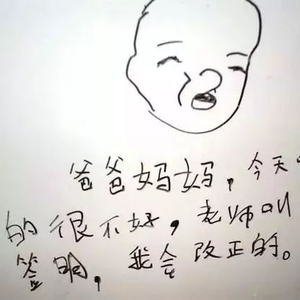 爸爸妈妈,今天
的很不好,老师叫
签明,我会改正的。